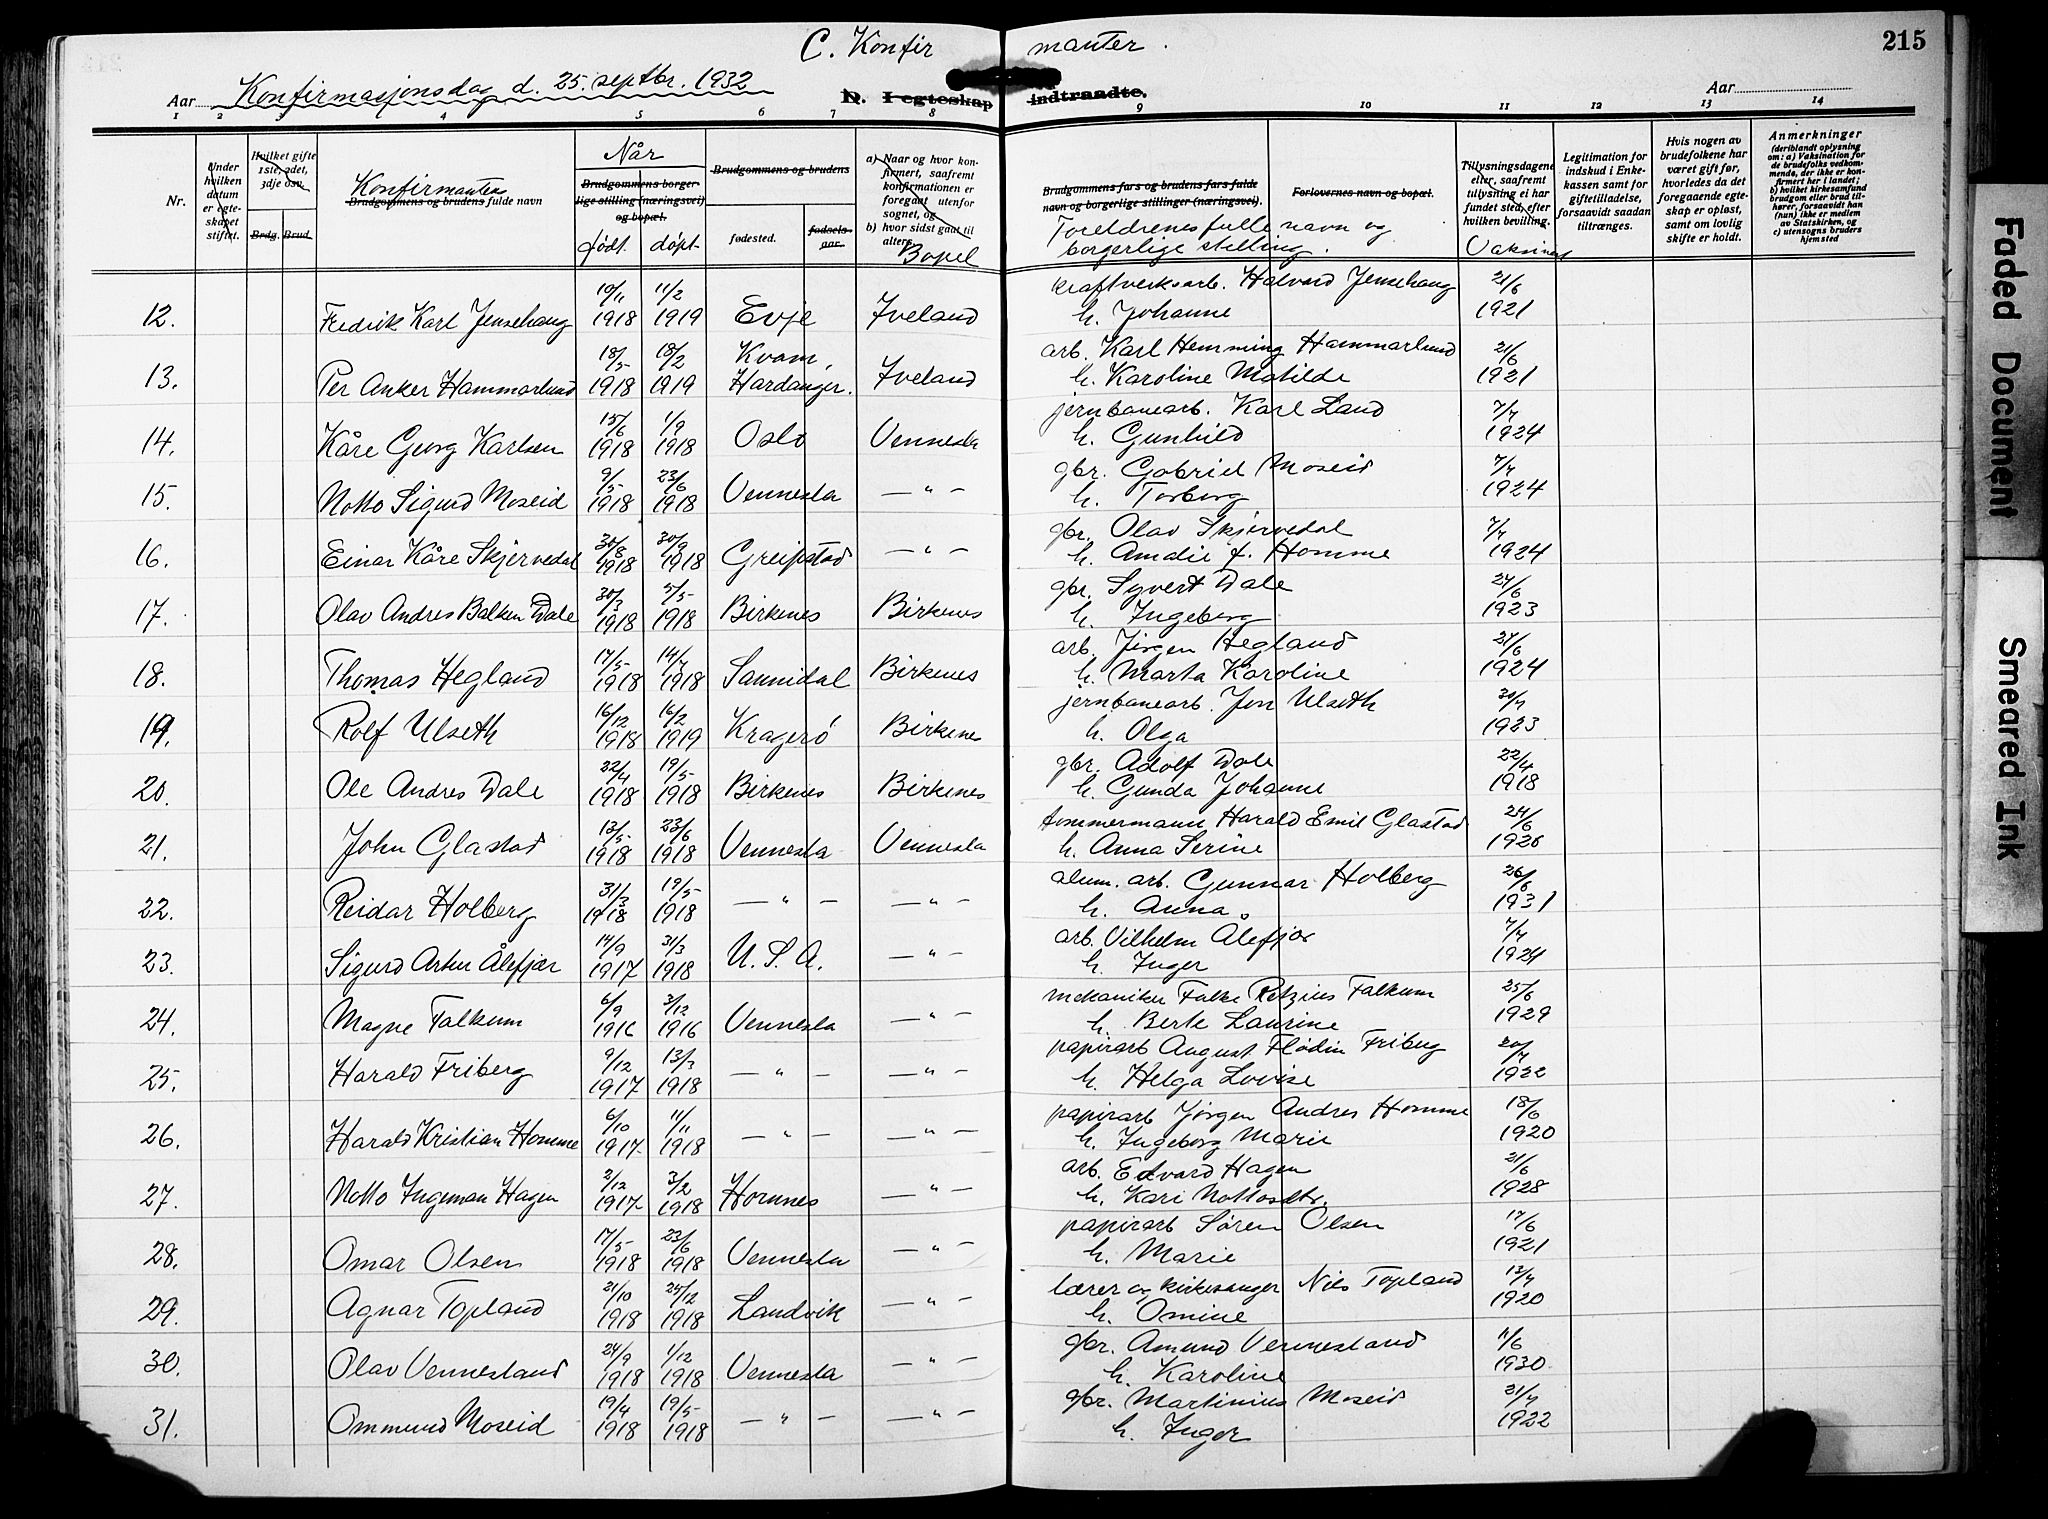 C. Konfir manter.
215
Aar Konfirmasjonsdag d. 25. septbr. 1932
D. I egteskap indtraadte.
Aar
1 2 3 4 5 6 7 8 9 10 11 12 13 14
Nr.
Under hvilken datum er egteskapet stiftet.
Hvilket gifte 1ste, 2det, 3dje osv.
Brdg. Brud.
Konfirmantens
Brudgommens og brudens fulde navn
Når
Brudgommens borgerlige stilling (næringsvei) og bopæl.
født. døpt.
Brudgommens og brudens
fødested. fødselsaar.
a) Naar og hvor konfirmert, saafremt konfirmationen er foregaat utenfor sognet, og
b) hvor sidst gaat til alters.
Bopel
Brudgommens fars og brudens fars fulde navn og borgerlige stillinger (næringsvei).
Foreldrenes fulle navn og borgerlige stilling.
Forlovernes navn og bopæl.
Tillysningsdagene eller, saafremt tillysning ei har fundet sted, efter hvilken bevilling.
Vaksinert
Legitimation for indskud i Enkekassen samt for giftetilladelse, forsaavidt saadan tiltrænges.
Hvis nogen av brudefolkene har været gift før, hvorledes da det foregaaende egteskap er opløst, samt om lovlig skifte er holdt.
Anmerkninger (deriblandt oplysning om: a) Vaksination for de brudefolks vedkommende, der ikke er konfirmert her i landet; b) hvilket kirkesamfund brudgom eller brud tilhører, forsaavidt han (hun) ikke er medlem av Statskirken, og c) utensogns bruders hjemsted
12. Fredrik Karl Jensehaug 10/11 1918 11/2 1919 Evje Iveland kraftverksarb. Halvard Jensehaug h. Johanne 21/6 1921
13. Per Anker Hammarlund 18/5 1918 18/2 1919 Kvam, Hardanger. Iveland arb. Karl Hemming Hammarlund h. Karoline Matilde 21/6 1921
14. Kåre Georg Karlsen 15/6 1918 1/9 1918 Oslo Vennesla jernbanearb. Karl Land h. Gunhild 7/7 1924
15. Notto Sigurd Moseid 9/5 1918 23/6 1918 Vennesla — " — gbr. Gabriel Moseid h. Torborg 7/7 1924
16. Einar Kåre Skjervedal 30/8 1918 30/9 1918 Greipstad — " — gbr. Olav Skjervedal h. Amalie f. Homme 7/7 1924
17. Olav Andres Balken Dale 30/3 1918 5/5 1918 Birkenes Birkenes gbr. Syvert Dale h. Ingeborg 27/6 1923
18. Thomas Hegland 17/5 1918 14/7 1918 Sannidal Birkenes arb. Jørgen Hegland h. Marta Karoline 27/6 1924
19. Rolf Ulseth 16/12 1918 16/2 1919 Kragerö Birkenes jernbanearb. Jon Ulseth h. Olga 30/7 1923
20. Ole Andres Dale 22/4 1918 19/5 1918 Birkenes Birkenes gbr. Adolf Dale h. Gunda Johanne 22/4 1918
21. John Glastad 13/5 1918 23/6 1918 Vennesla Vennesla tømmermann Harald Emil Glastad h. Anna Serine 24/6 1926
22. Reidar Holberg 31/3 1918 19/5 1918 — " — — " — alum. arb. Gunnar Holberg h. Anna 26/6 1931
23. Sigurd Artur Ålefjær 14/9 1917 31/3 1918 U.S.A. — " — arb. Vilhelm Ålefjær h. Inger 7/7 1924
24. Magne Falkum 6/9 1916 3/12 1916 Vennesla — " — mekaniker Falke Retzius Falkum h. Berte Laurine 25/6 1929
25. Harald Friberg 9/12 1917 13/3 1918 — " — — " — papirarb August Flodin Friberg h. Helga Lovise 20/7 1922
26. Harald Kristian Homme 6/10 1917 11/11 1918 — " — — " — papirarb Jørgen Andres Homme h. Ingeborg Marie 18/6 1920
27. Notto Ingeman Hagen 2/12 1917 3/2 1918 Hornnes — " — arb. Edvard Hagen h. Kari Nottosdtr. 21/6 1928
28. Omar Olsen 17/5 1918 23/6 1918 Vennesla — " — papirarb Søren Olsen h. Marie 17/6 1921
29. Agnar Topland 21/10 1918 25/12 1918 Landvik — " — lærer og kirkesanger Nils Topland h. Omine 13/7 1920
30. Olav Vennesland 24/9 1918 1/12 1918 Vennesla — " — gbr. Amund Vennesland h. Karoline 11/6 1930
31. Ommund Moseid 19/4 1918 19/5 1918 — " — — " — gbr. Martinius Moseid h. Inger 31/7 1922
Faded Document
Smeared Ink